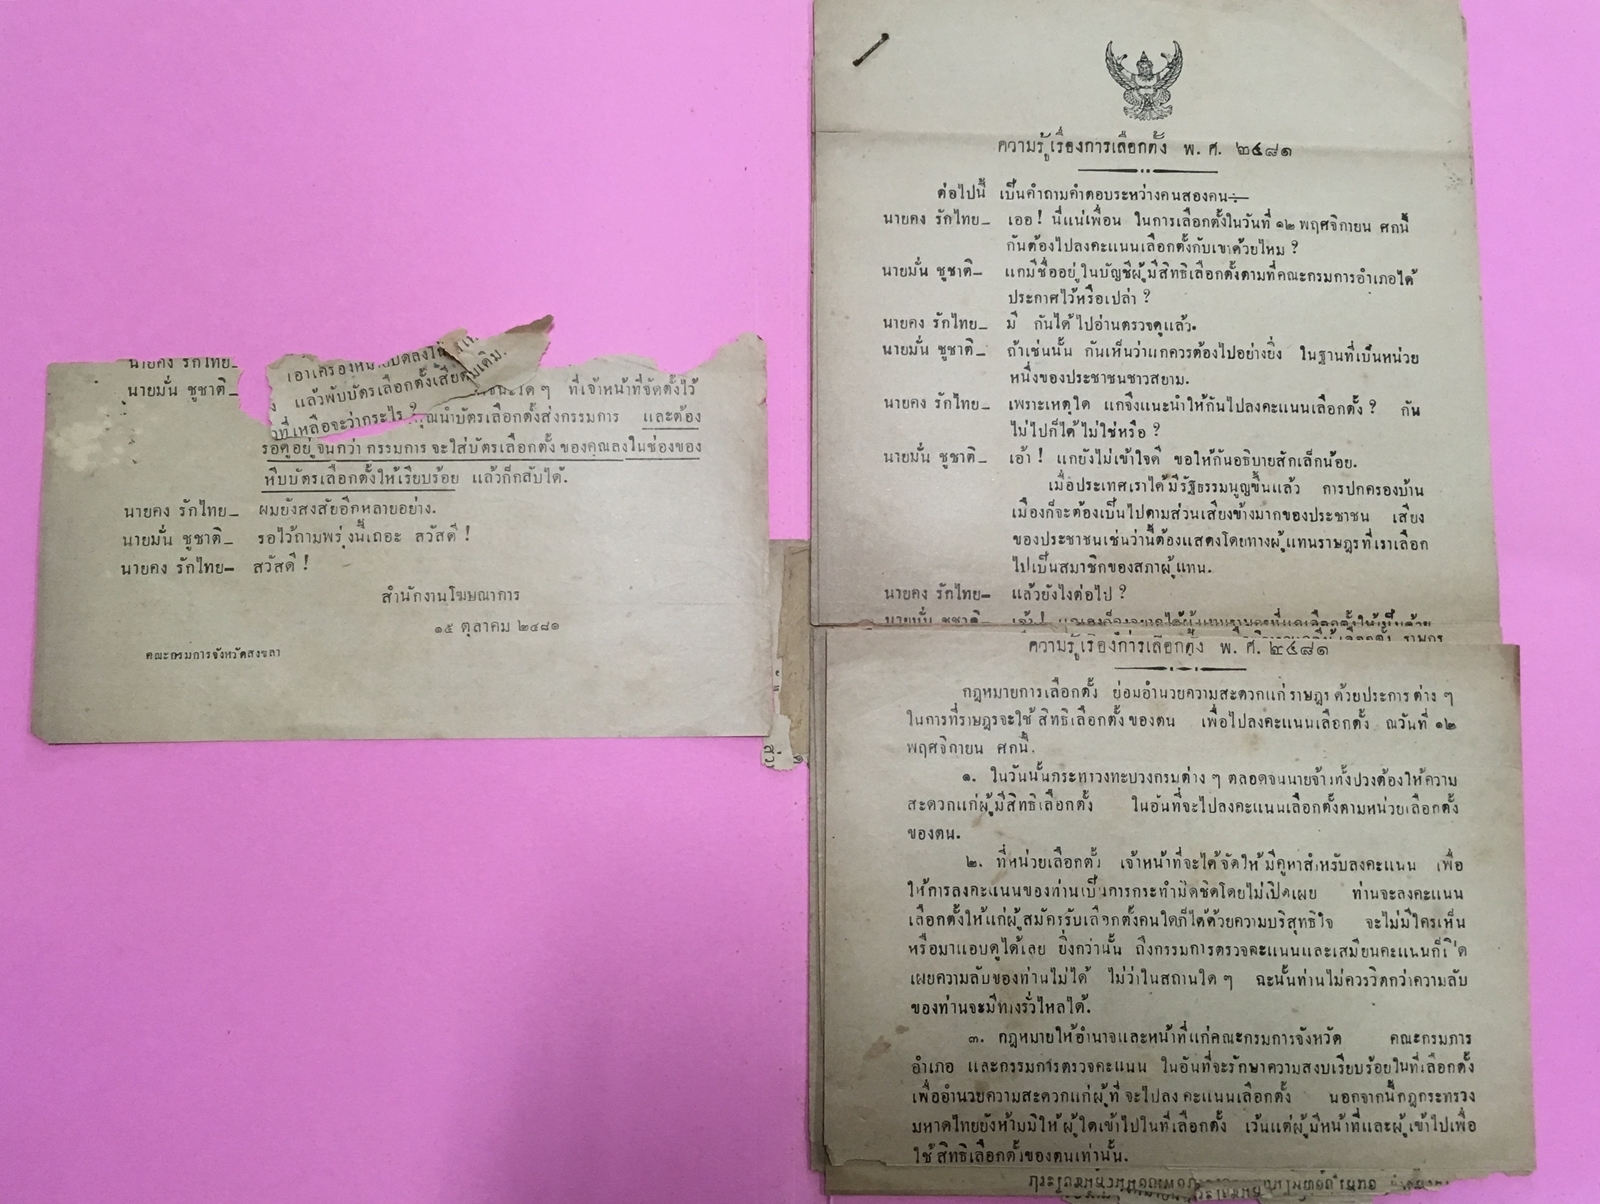 นายคง รักไทย_
นายมั่น ชูชาติ_
แล้วพับบัตรเลือกตั้งเสีย
ใด ๆ ที่เจ้าหน้าที่จัดตั้งไว้
ที่เหลือจะว่ากระไร ?
คุณนำบัตรเลือกตั้งส่งกรรมการ และต้อง
รอดูอยู่จนกว่า กรรมการ จะใส่บัตรเลือกตั้ง ของคุณลงในช่องของ
หีบบัตรเลือกตั้งให้เรียบร้อย แล้วก็กลับได้.
นายคง รักไทย_ ผมยังสงสัยอีกหลายอย่าง.
นายมั่น ชูชาติ_ รอไว้ถามพรุ่งนี้เถอะ สวัสดี !
นายคง รักไทย_ สวัสดี !
สำนักงานโฆษณาการ
๑๕ ตุลาคม ๒๔๘๑
คณะกรมการจังหวัดสงขลา
ความรู้เรื่องการเลือกตั้ง พ. ศ. ๒๔๘๑
ต่อไปนี้ เป็นคำถามคำตอบระหว่างคนสองคน:—
นายคง รักไทย_ เออ ! นี่แน่เพื่อน ในการเลือกตั้งในวันที่ ๑๒ พฤศจิกายน ศกนี้
กันต้องไปลงคะแนนเลือกตั้งกับเขาด้วยไหม ?
นายมั่น ชูชาติ_ แกมีชื่ออยู่ในบัญชีผู้มีสิทธิเลือกตั้งตามที่คณะกรมการอำเภอได้
ประกาศไว้หรือเปล่า ?
นายคง รักไทย_ มี กันได้ไปอ่านตรวจดูแล้ว.
นายมั่น ชูชาติ_ ถ้าเช่นนั้น กันเห็นว่าแกควรต้องไปอย่างยิ่ง ในฐานที่เป็นหน่วย
หนึ่งของประชาชนชาวสยาม.
นายคง รักไทย_ เพราะเหตุใด แกจึงแนะนำให้กันไปลงคะแนนเลือกตั้ง ? กัน
ไม่ไปก็ได้ไม่ใช่หรือ ?
นายมั่น ชูชาติ_ เอ้า ! แกยังไม่เข้าใจดี ขอให้กันอธิบายสักเล็กน้อย.
เมื่อประเทศเราได้มีรัฐธรรมนูญขึ้นแล้ว การปกครองบ้าน
เมืองก็จะต้องเป็นไปตามส่วนเสียงข้างมากของประชาชน เสียง
ของประชาชนเช่นว่านี้ต้องแสดงโดยทางผู้แทนราษฎรที่เราเลือก
ไปเป็นสมาชิกของสภาผู้แทน.
นายคง รักไทย_ แล้วยังไงต่อไป ?
นายมั่น ชูชาติ_
ความรู้เรื่องการเลือกตั้ง พ. ศ. ๒๔๘๑
กฎหมายการเลือกตั้ง ย่อมอำนวยความสะดวกแก่ราษฎร ด้วยประการ ต่าง ๆ
ในการที่ราษฎรจะใช้ สิทธิเลือกตั้ง ของตน เพื่อไปลงคะแนนเลือกตั้ง ณวันที่ ๑๒
พฤศจิกายน ศกนี้.
๑. ในวันนั้นกระทรวงทะบวงกรมต่าง ๆ ตลอดจนนายจ้างทั้งปวงต้องให้ความ
สะดวกแก่ผู้มีสิทธิเลือกตั้ง ในอันที่จะไปลงคะแนนเลือกตั้งตามหน่วยเลือกตั้ง
ของตน.
๒. ที่หน่วยเลือกตั้ง เจ้าหน้าที่จะได้จัดให้มีคูหาสำหรับลงคะแนน เพื่อ
ให้การลงคะแนนของท่านเป็นการกระทำมิดชิดโดยไม่เปิดเผย ท่านจะลงคะแนน
เลือกตั้งให้แก่ผู้สมัครรับเลือกตั้งคนใดก็ได้ด้วยความบริสุทธิใจ จะไม่มีใครเห็น
หรือมาแอบดูได้เลย ยิ่งกว่านั้น ถึงกรรมการตรวจคะแนนและเสมียนคะแนนก็เปิด
เผยความลับของท่านไม่ได้ ไม่ว่าในสถานใด ๆ ฉะนั้นท่านไม่ควรวิตกว่าความลับ
ของท่านจะมีทางรั่วไหลได้.
๓. กฎหมายให้อำนาจและหน้าที่แก่คณะกรมการจังหวัด คณะกรมการ
อำเภอ และกรรมการตรวจคะแนน ในอันที่จะรักษาความสงบเรียบร้อยในที่เลือกตั้ง
เพื่ออำนวยความสะดวกแก่ผู้ที่ จะไปลง คะแนนเลือกตั้ง นอกจากนี้กฎกระทรวง
มหาดไทยยังห้ามมิให้ ผู้ใดเข้าไปในที่เลือกตั้ง เว้นแต่ผู้มีหน้าที่และผู้เข้าไปเพื่อ
ใช้ สิทธิเลือกตั้งของตนเท่านั้น.